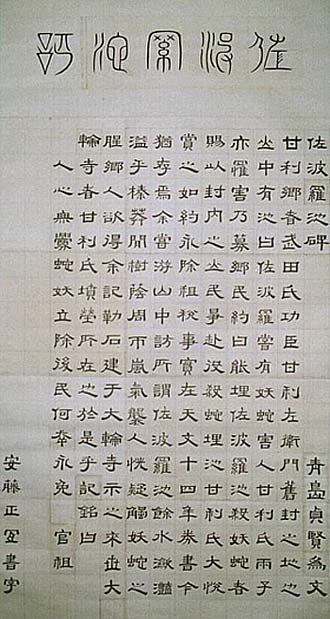 佐波羅池碑
佐波羅池碑 青島貞賢為文
甘利郷者武田氏功臣甘利左衛門舊封之地也
山中有池曰佐波羅嘗有妖蛇害人甘利氏兩子
亦罹害乃募郷民約曰能埋佐波羅池殺妖蛇者
賜以封内之山民爭赴役殺蛇埋池甘利氏大悦
賞之如約永除租税事實在天文十四年券書今
猶存焉余嘗游山中訪所謂佐波羅池餘水瀲灩
溢乎榛莽間樹陰周帀嵐氣襲人恍疑觸妖蛇之
腥郷人欲得余記勒石建于大輪寺示之來世大
輪寺者甘利氏墳塋所在也於是乎記銘曰
人心無釁蛇妖立除後民何幸永免 官租
安藤正書字